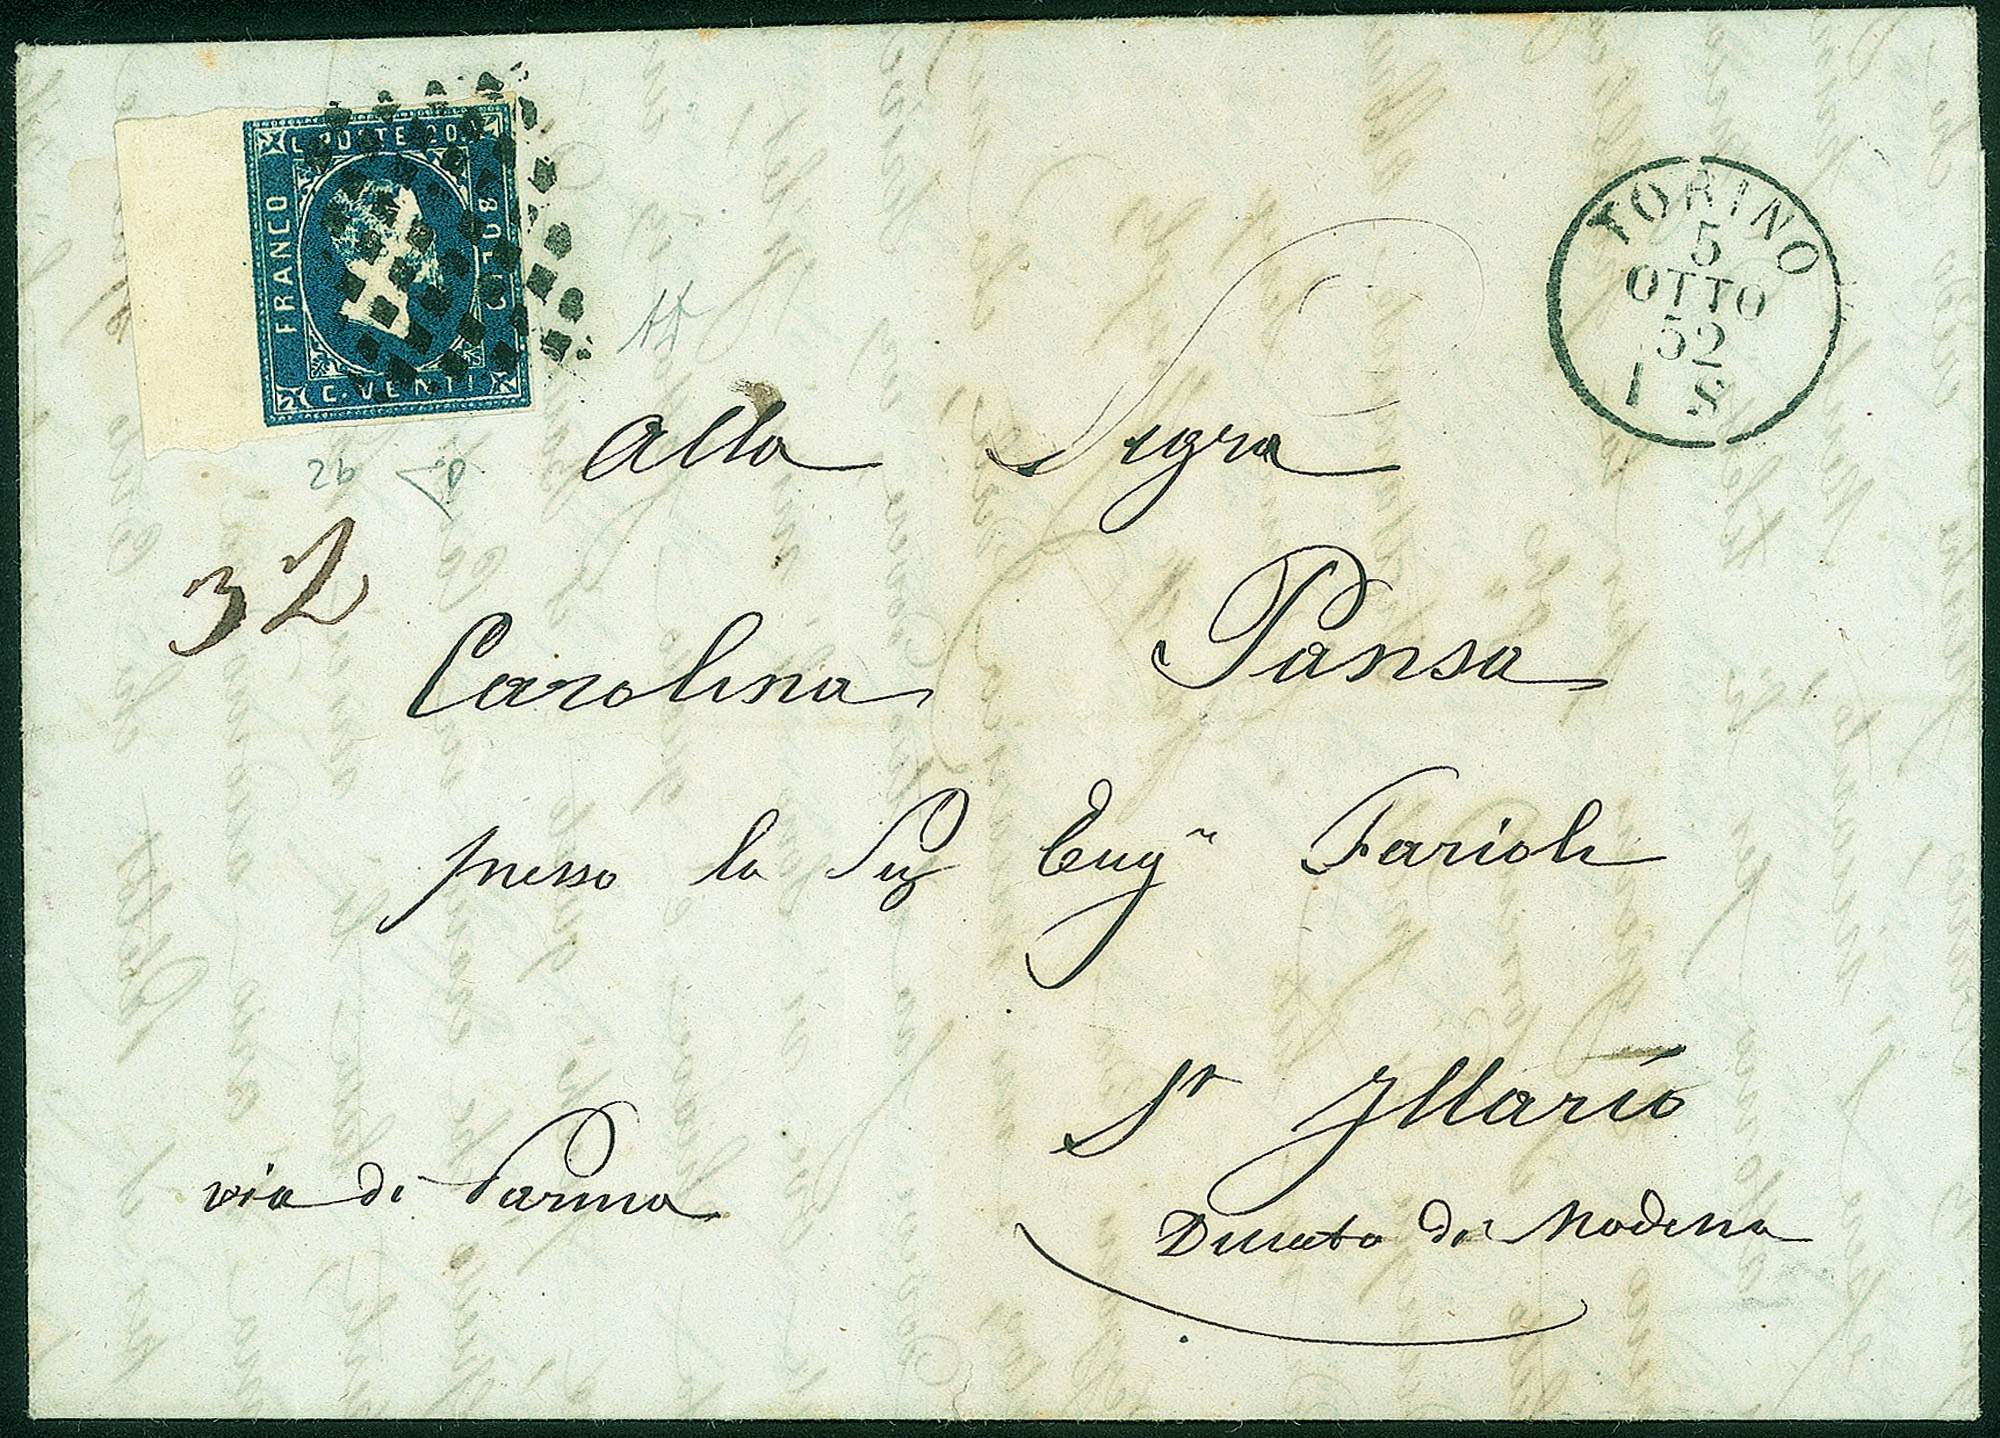 C. POSTE 20.
FRANCO
BOLLO
C. VENTI
TORINO
5
OTTO
52
1 S
2b
32
Alla Sigra
Carolina Pansa
presso la Sig Eugª Farioli
St Illario
via di Parma
Ducato di Modena